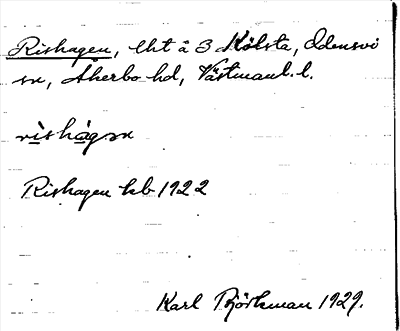 Rishagen, lht å 3 Mölsta, Odensvi
sn, Åkerbo hd, Västmanl. l.
rishagen
Rishagen kb 1922
Karl Björkman 1929.